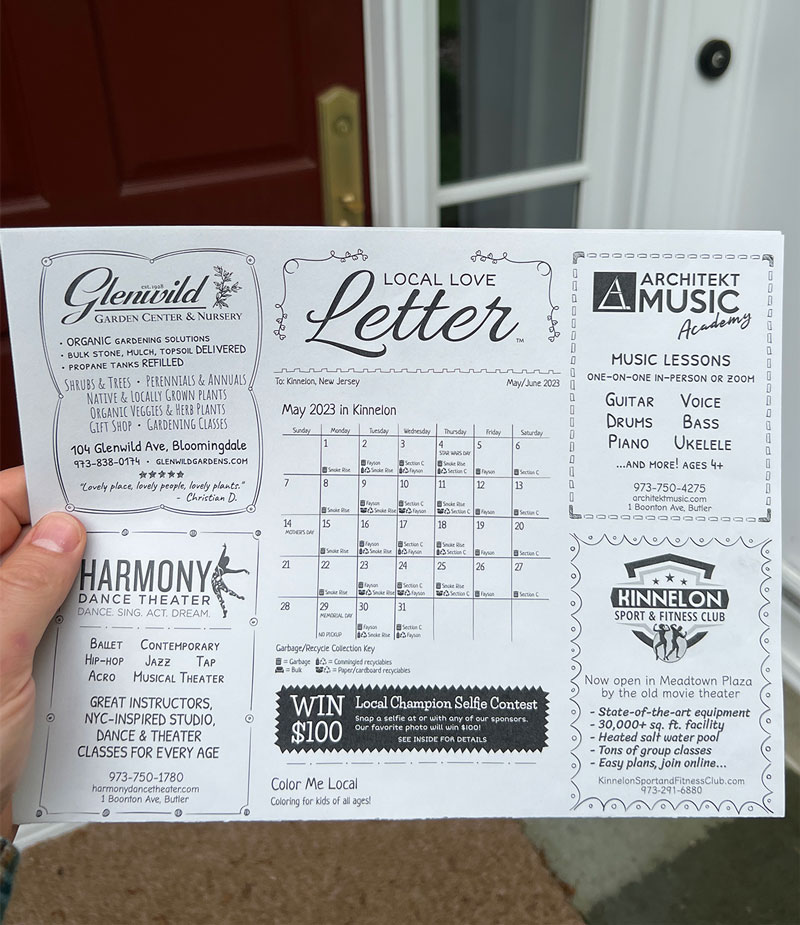 Glenwild
est. 1928
GARDEN CENTER & NURSERY
• ORGANIC GARDENING SOLUTIONS
• BULK STONE, MULCH, TOPSOIL DELIVERED
• PROPANE TANKS REFILLED
SHRUBS & TREES • PERENNIALS & ANNUALS
NATIVE & LOCALLY GROWN PLANTS
ORGANIC VEGGIES & HERB PLANTS
GIFT SHOP • GARDENING CLASSES
104 Glenwild Ave, Bloomingdale
973-838-0174 • GLENWILDGARDENS.COM
"Lovely place, lovely people, lovely plants."
- Christian D.
HARMONY
DANCE THEATER
DANCE. SING. ACT. DREAM.
BALLET CONTEMPORARY
HIP-HOP JAZZ TAP
ACRO MUSICAL THEATER
GREAT INSTRUCTORS,
NYC-INSPIRED STUDIO,
DANCE & THEATER
CLASSES FOR EVERY AGE
973-750-1780
harmonydancetheater.com
1 Boonton Ave, Butler
LOCAL LOVE
Letter™
To: Kinnelon, New Jersey May/June 2023
May 2023 in Kinnelon
Sunday Monday Tuesday Wednesday Thursday Friday Saturday
1 2 3 4 5 6
STAR WARS DAY
Fayson Section C Smoke Rise
Smoke Rise Smoke Rise Fayson Section C Fayson Section C
7 8 9 10 11 12 13
Fayson Section C Smoke Rise
Smoke Rise Smoke Rise Fayson Section C Fayson Section C
14 15 16 17 18 19 20
MOTHER'S DAY
Fayson Section C Smoke Rise
Smoke Rise Smoke Rise Fayson Section C Fayson Section C
21 22 23 24 25 26 27
Fayson Section C Smoke Rise
Smoke Rise Smoke Rise Fayson Section C Fayson Section C
28 29 30 31
MEMORIAL DAY
Fayson Section C
NO PICKUP Smoke Rise Fayson
Garbage/Recycle Collection Key
= Garbage = Commingled recyclables
= Bulk = Paper/cardboard recyclables
WIN
$100
Local Champion Selfie Contest
Snap a selfie at or with any of our sponsors.
Our favorite photo will win $100!
SEE INSIDE FOR DETAILS
Color Me Local
Coloring for kids of all ages!
A
ARCHITEKT
MUSIC
Academy
MUSIC LESSONS
ONE-ON-ONE IN-PERSON OR ZOOM
GUITAR VOICE
DRUMS BASS
PIANO UKELELE
...AND MORE! AGES 4+
973-750-4275
architektmusic.com
1 Boonton Ave, Butler
KINNELON
SPORT & FITNESS CLUB
Now open in Meadtown Plaza
by the old movie theater
- State-of-the-art equipment
- 30,000+ sq. ft. facility
- Heated salt water pool
- Tons of group classes
- Easy plans, join online...
KinnelonSportandFitnessClub.com
973-291-6880